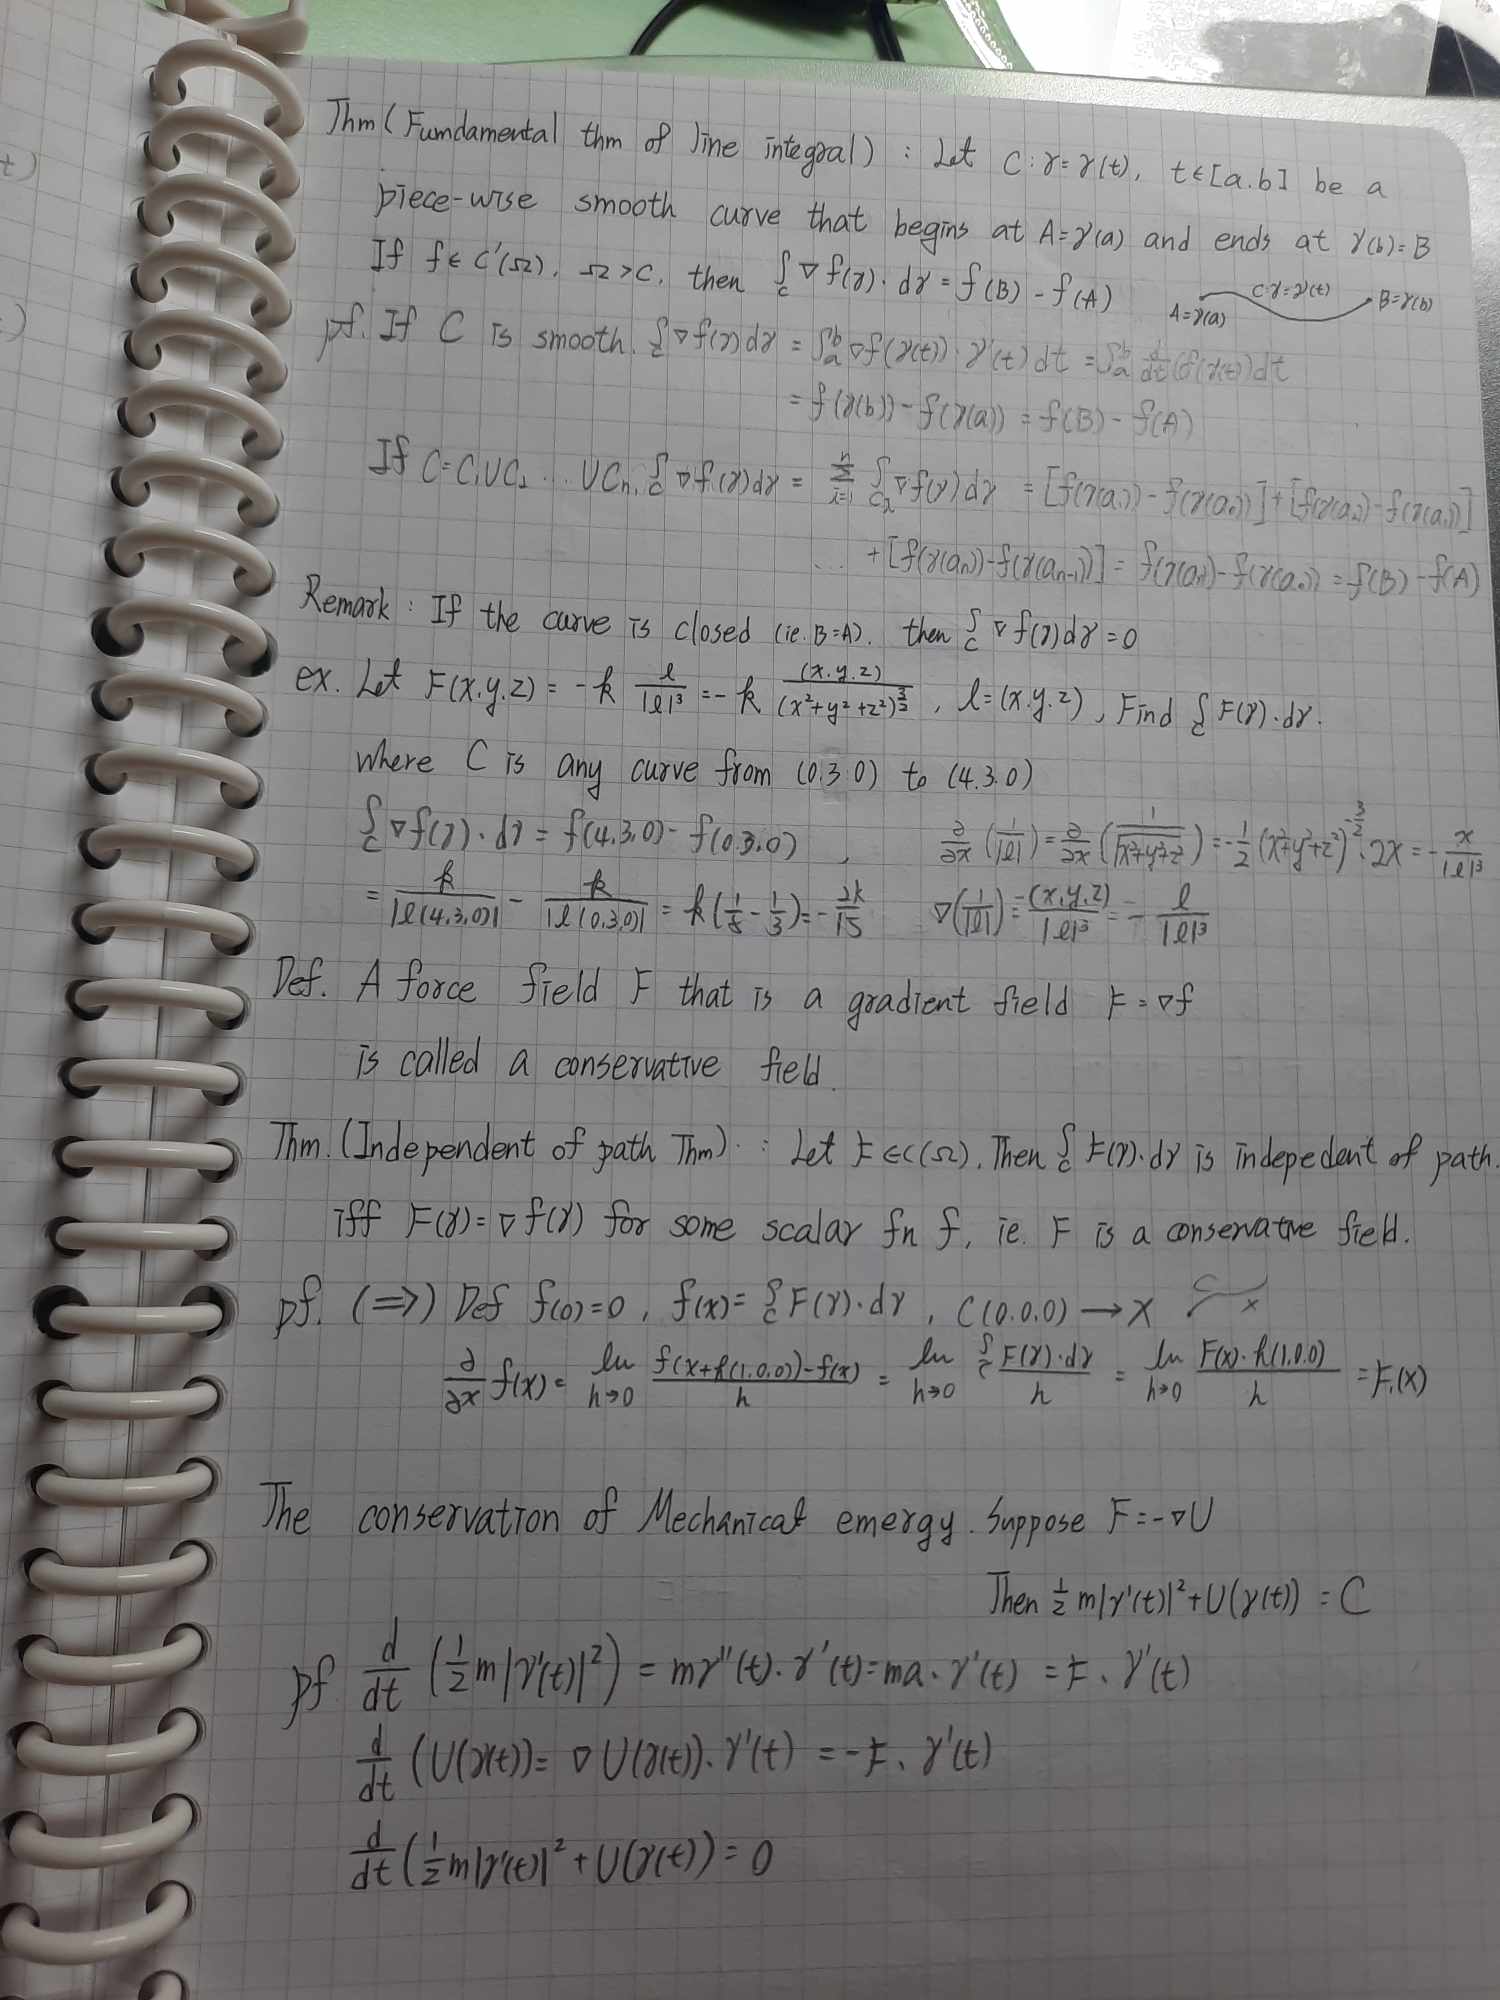 Thm (Fundamental thm of line integral) : Let C:γ=γ(t), t∈[a.b] be a
piece-wise smooth curve that begins at A=γ(a) and ends at γ(b)=B
If f∈C'(Ω), Ω>C, then ∫_C ∇f(γ)·dγ = f(B) - f(A)
C:γ=γ(t)
A=γ(a) B=γ(b)
pf. If C is smooth. ∫_C ∇f(γ)dγ = ∫_a^b ∇f(γ(t))·γ'(t)dt = ∫_a^b d/dt (f(γ(t))dt
= f(γ(b)) - f(γ(a)) = f(B) - f(A)
If C=C₁UC₂ ... UCn, ∫_C ∇f(γ)dγ = Σ_{i=1}^n ∫_{C_i} ∇f(γ)dγ = [f(γ(a₁)) - f(γ(a₀))] + [f(γ(a₂)) - f(γ(a₁))]
... + [f(γ(an)) - f(γ(an-1))] = f(γ(an)) - f(γ(a₀)) = f(B) - f(A)
Remark : If the curve is closed (ie. B=A). then ∫_C ∇f(γ)dγ = 0
ex. Let F(x.y.z) = -k l/|l|³ = -k (x.y.z)/(x²+y²+z²)^{3/2}, l=(x.y.z), Find ∫_C F(γ)·dγ.
where C is any curve from (0.3.0) to (4.3.0)
∫_C ∇f(γ)·dγ = f(4,3,0) - f(0.3.0) , ∂/∂x (1/|l|) = ∂/∂x (1/√(x²+y²+z²)) = -1/2 (x²+y²+z²)^{-3/2}·2x = - x/|l|³
= k/|l(4,3,0)| - k/|l(0,3,0)| = k(1/5 - 1/3) = - 2k/15 ∇(1/|l|) = -(x,y,z)/|l|³ = - l/|l|³
Def. A force field F that is a gradient field F = ∇f
is called a conservative field.
Thm. (Independent of path Thm) : Let F∈C(Ω), Then ∫_C F(γ)·dγ is indepedent of path.
iff F(γ) = ∇f(γ) for some scalar fn f, ie. F is a conservative field.
pf. (⇒) Def f(0)=0, f(x) = ∫_C F(γ)·dγ , C(0.0.0) → X C x
∂/∂x f(x) = lim_{h→0} (f(x+h(1,0,0)) - f(x))/h = lim_{h→0} ∫_C F(γ)·dγ/h = lim_{h→0} F(x)·h(1.0.0)/h = F₁(x)
The conservation of Mechanical emergy. Suppose F = -∇U
Then 1/2 m|γ'(t)|² + U(γ(t)) = C
pf d/dt (1/2 m|γ'(t)|²) = mγ''(t)·γ'(t) = ma·γ'(t) = F·γ'(t)
d/dt (U(γ(t)) = ∇U(γ(t))·γ'(t) = -F·γ'(t)
d/dt (1/2 m|γ'(t)|² + U(γ(t)) = 0